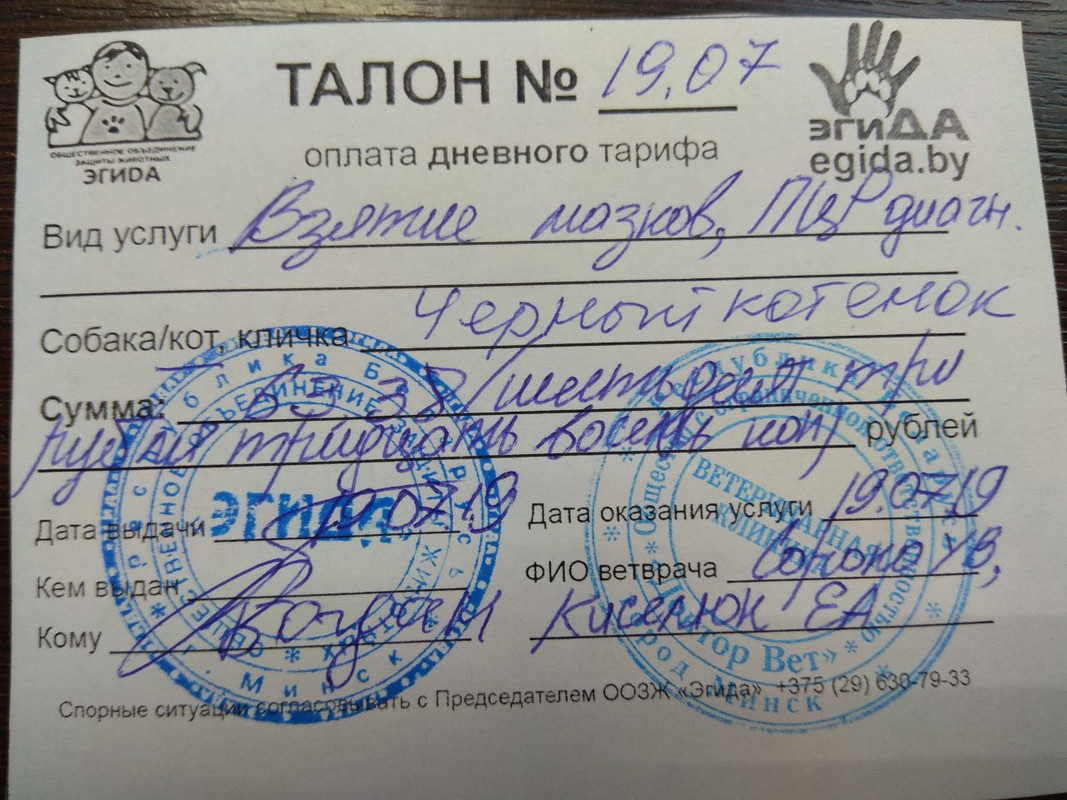 ОБЩЕСТВЕННОЕ ОБЪЕДИНЕНИЕ
ЗАЩИТЫ ЖИВОТНЫХ
ЭГИДА
ТАЛОН № 19.07
эгиДА
egida.by
оплата дневного тарифа
Вид услуги Взятие мазков, ПЦР диагн.
Собака/кот, кличка Черный котенок
Сумма: 63 38 (шестьдесят три
рубля тридцать восемь коп) рублей
Дата выдачи 19.07.19
Дата оказания услуги 19.07.19
Кем выдан
ФИО ветврача
Кому
Киселюк ЕА
Спорные ситуации согласовывать с Председателем ООЗЖ «Эгида» +375 (29) 630-79-33
Республика Беларусь
ОБЩЕСТВЕННОЕ ОБЪЕДИНЕНИЕ ЗАЩИТЫ ЖИВОТНЫХ
ЭГИДА
г. Минск
Республика Беларусь
Общество с ограниченной ответственностью
ВЕТЕРИНАРНАЯ
КЛИНИКА
Вет»
город Минск